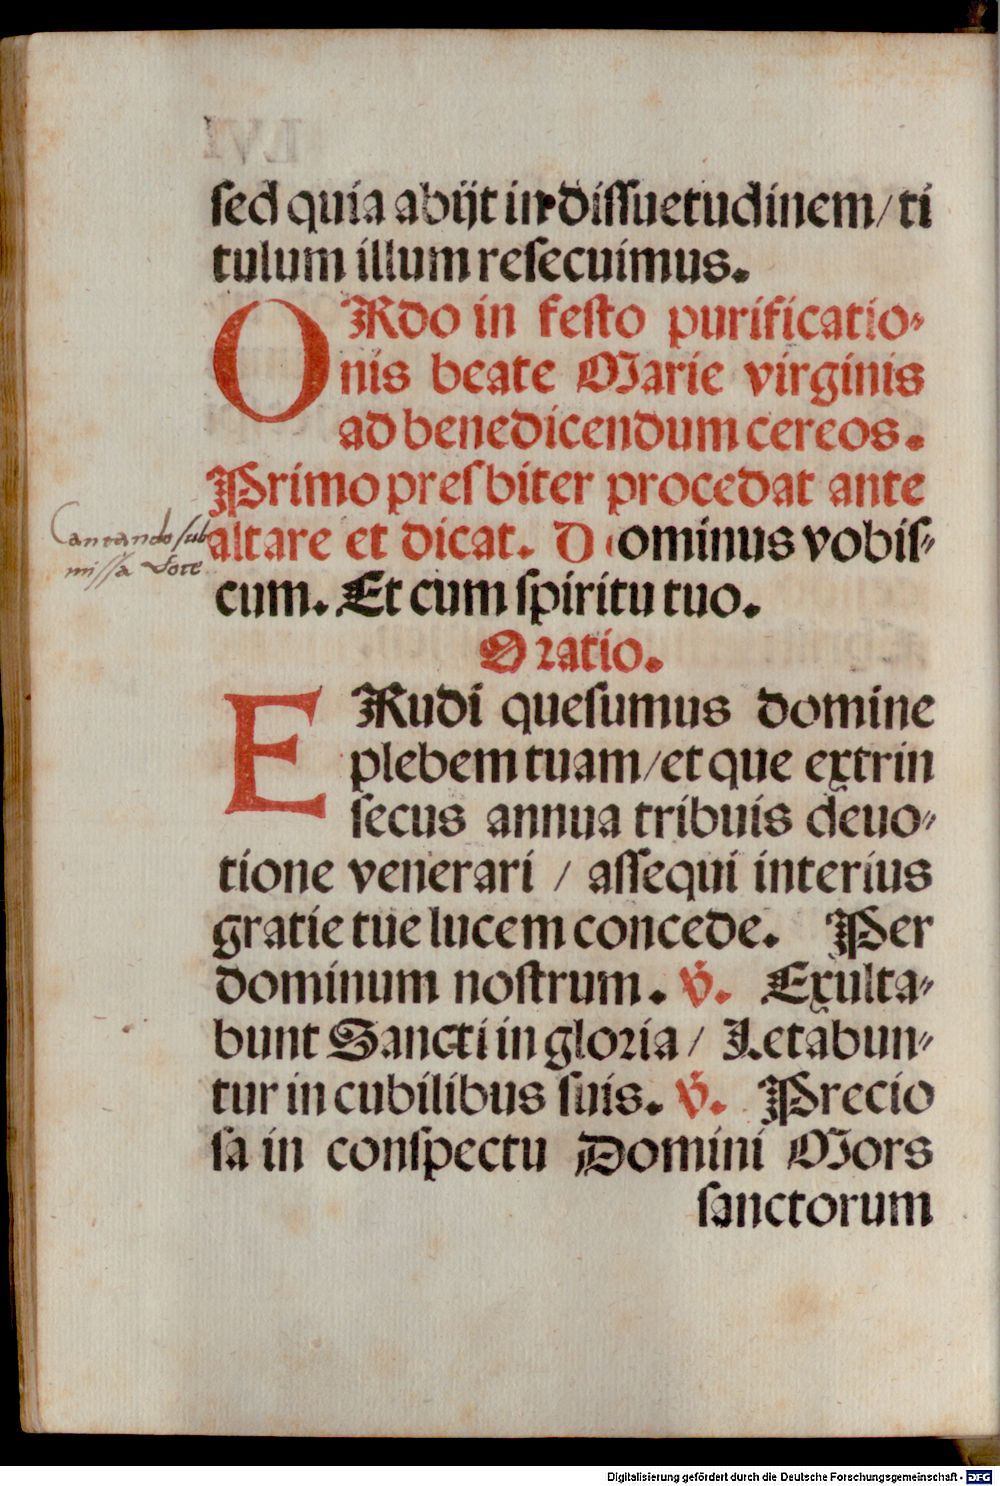 sed quia abijt in dissuetudinem/ ti
tulum illum resecuimus.
ORdo in festo purificatio⸗
nis beate Marie virginis
ad benedicendum cereos.
Primo presbiter procedat ante
Cantando sub
missa voce
altare et dicat. Dominus vobis⸗
cum. Et cum spiritu tuo.
Oratio.
ERudi quesumus domine
plebem tuam/ et que extrin
secus annua tribuis deuo⸗
tione venerari / assequi interius
gratie tue lucem concede. Per
dominum nostrum. V̉. Exulta⸗
bunt Sancti in gloria/ Letabun⸗
tur in cubilibus suis. V̉. Precio
sa in conspectu Domini Mors
sanctorum
Digitalisierung gefördert durch die Deutsche Forschungsgemeinschaft - DFG